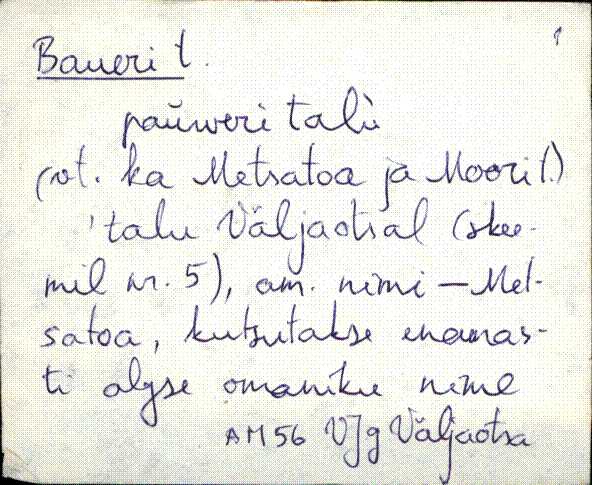 Baueri t.
paŭweri talù
(vt. ka Metsatoa ja Moori t.)
'talu Väljaotsal (skee-
mil nr. 5), am. nimi – Met-
satoa, kutsutakse enamas-
ti algse omaniku nime
AM56 VJg Väljaotsa